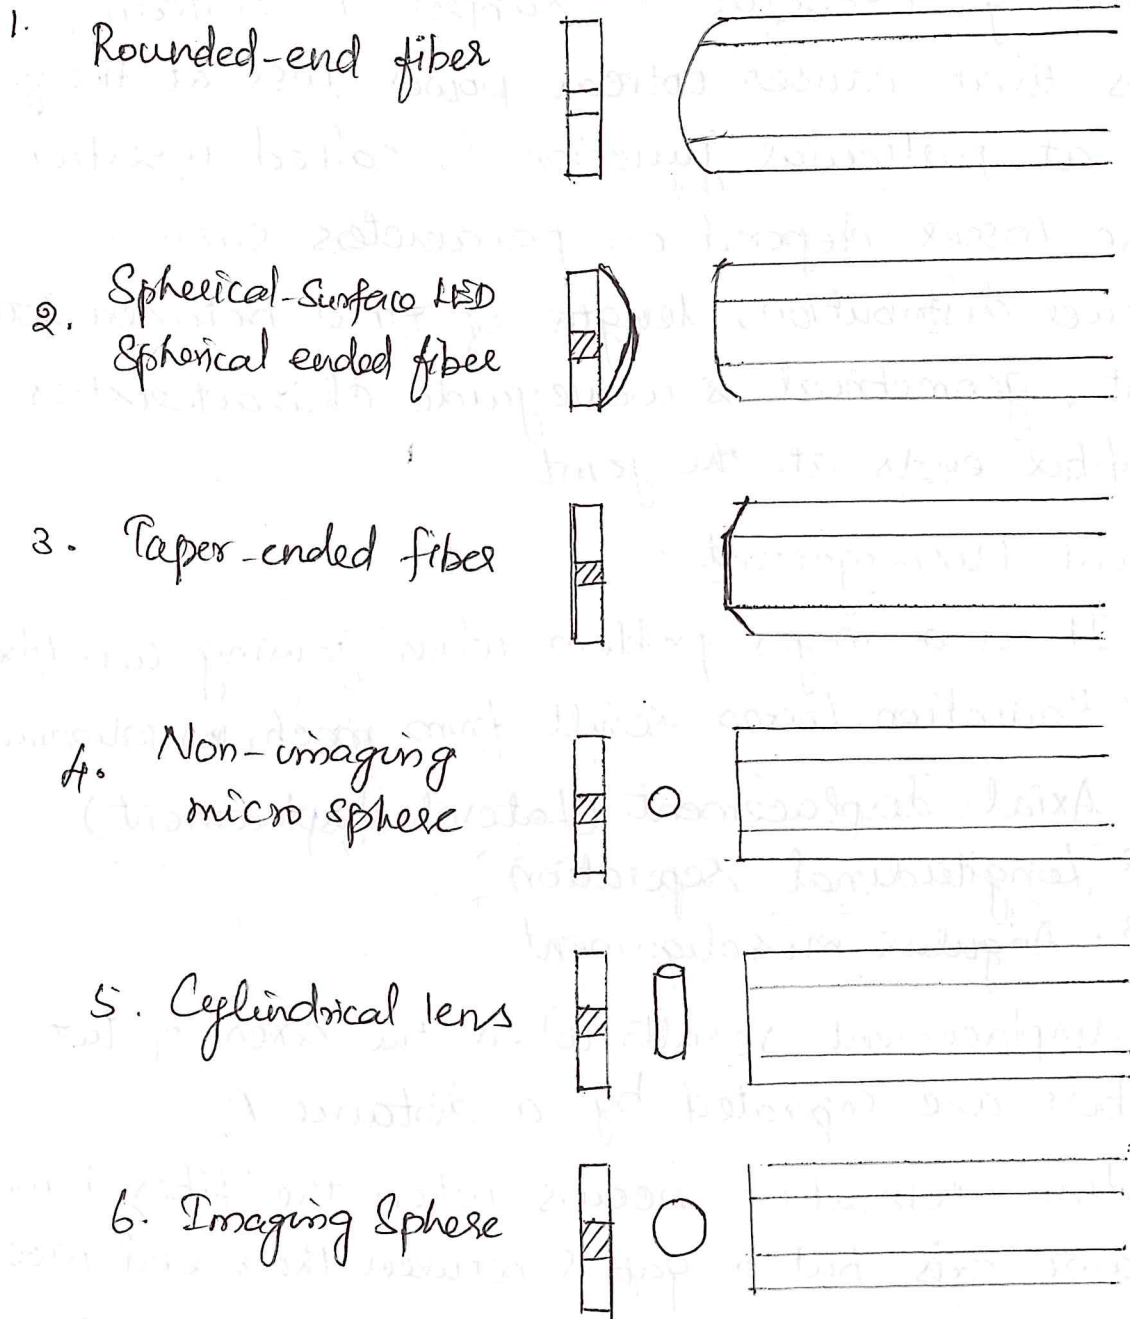 1.
Rounded-end fiber
2. Spherical-Surface LED
Spherical ended fiber
3. Taper-ended fiber
4. Non-imaging
micro sphere
5. Cylindrical lens
6. Imaging Sphere